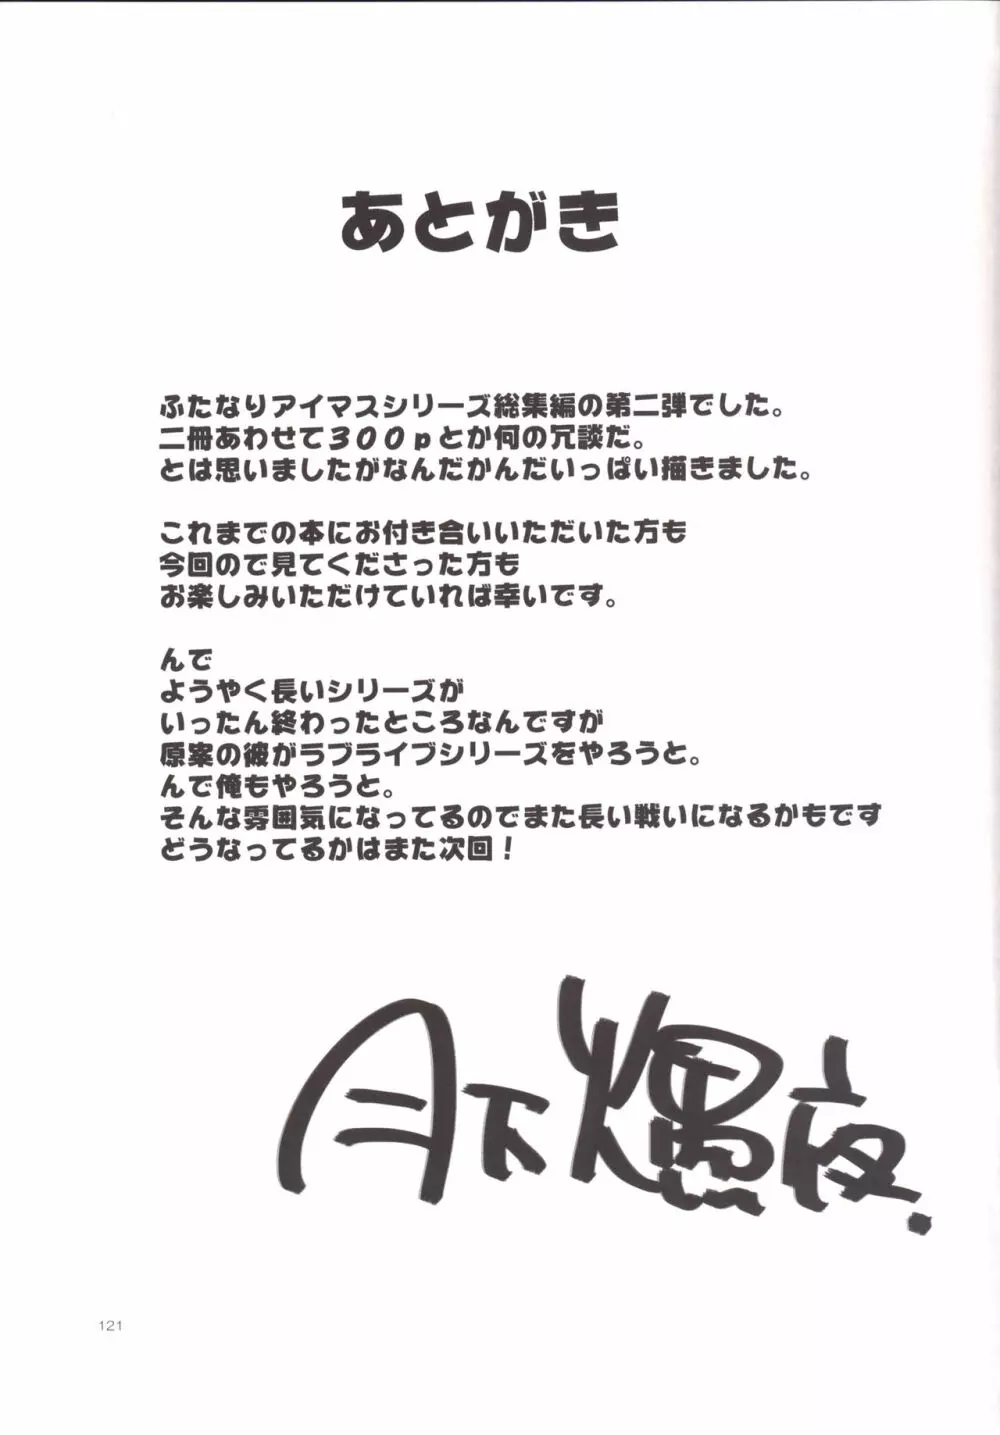 あとがき
ふたなりアイマスシリーズ総集編の第二弾でした。
二冊あわせて３００ｐとか何の冗談だ。
とは思いましたがなんだかんだいっぱい描きました。
これまでの本にお付き合いいただいた方も
今回ので見てくださった方も
お楽しみいただけていれば幸いです。
んで
ようやく長いシリーズが
いったん終わったところなんですが
原案の彼がラブライブシリーズをやろうと。
んで俺もやろうと。
そんな雰囲気になってるのでまた長い戦いになるかもです
どうなってるかはまた次回！
月下燻夜.
121